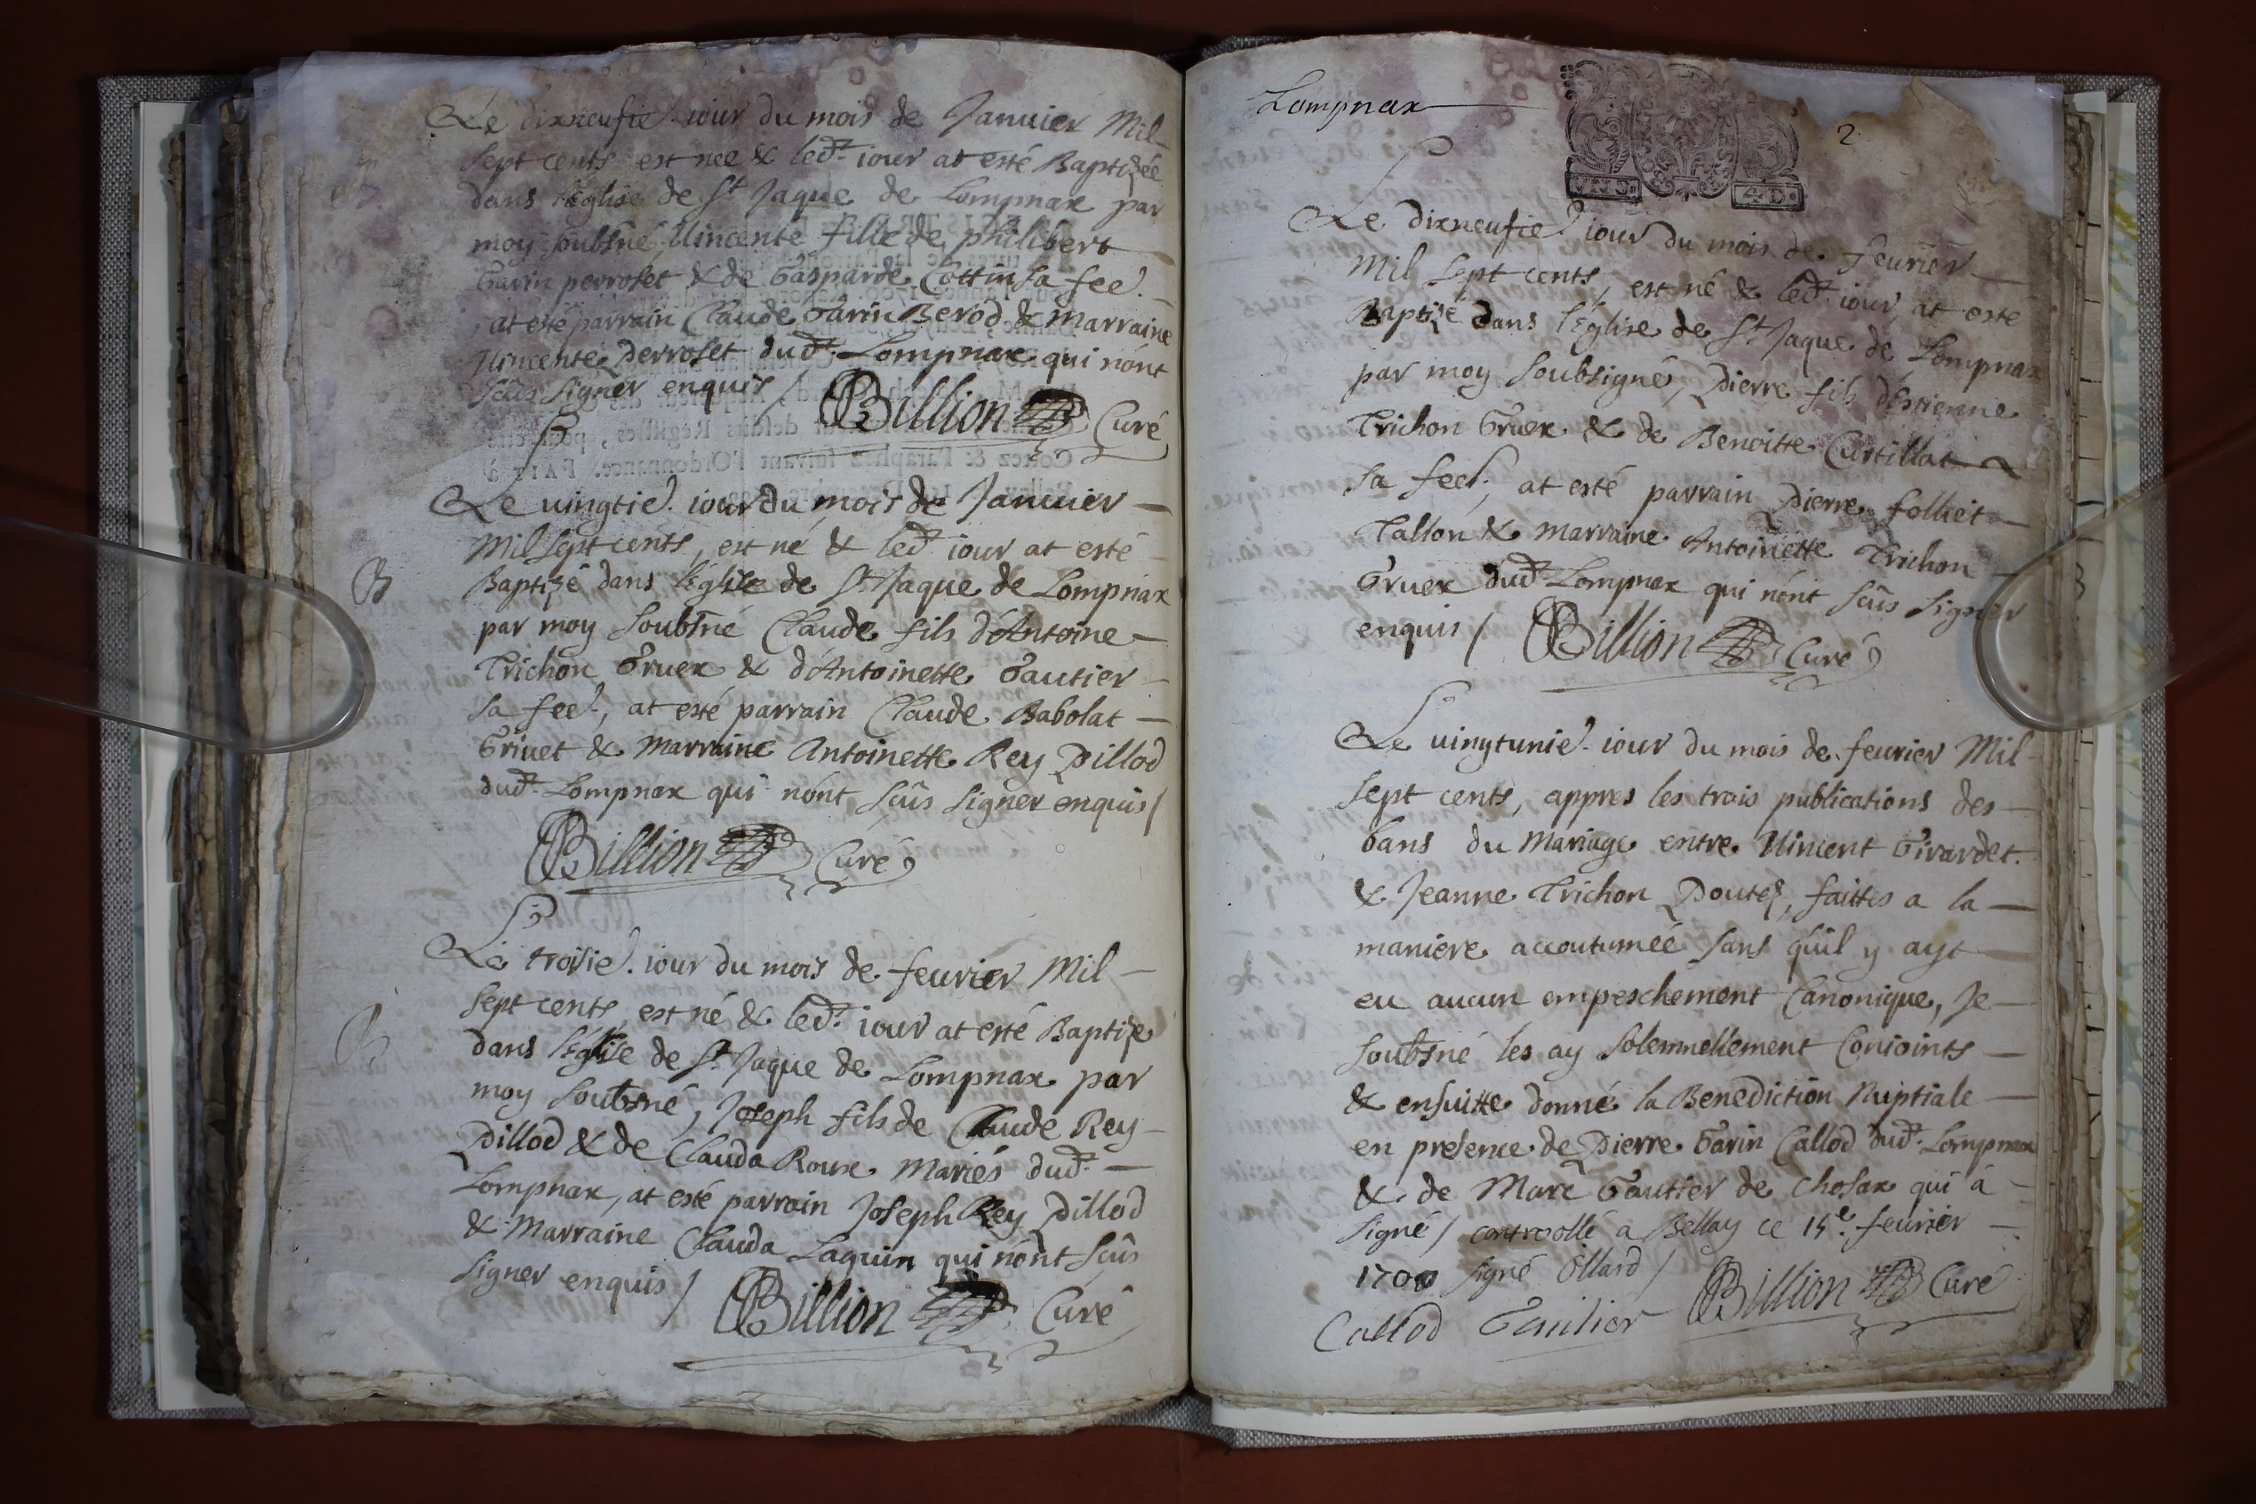 Le dixneufie. iour du mois de Januier Mil
sept cents est nee & led.t iour at esté Baptizée
dans l'Eglise de St Jaque de Lompnax par
moy soubsné, Uincente fille de philibert
Garin perroset & de Gasparde Cottin sa fee.
at esté parrain Claude Garin Berod & marraine
Uincente Perroset dud.t Lompnax qui nónt
sçûs signer enquis / Billion Curé
Le uingtie. iour du mois de Januier
Mil sept cents, est né & led.t iour at esté
B
Baptizé dans l'Eglise de St Jaque de Lompnax
par moy soubsné Claude fils d'Antoine
Trichon Gruex & d'Antoinette Gautier
sa fee., at esté parrain Claude Babolat
Griuet & Marraine Antoinette Rey Pillod
dud.t Lompnax qui nónt sçûs signer enquis /
Billion Curé
Le troisie. iour du mois de feurier Mil
sept cents, est né & led.t iour at esté Baptizé
B
dans l'Eglise de St Jaque de Lompnax par
moy soubsné, Joseph fils de Claude Rey
Pillod & de Clauda Roux Mariés dud.t
Lompnax, at esté parrain Joseph Rey Pillod
& Marraine Clauda Laguin qui nónt sçûs
signer enquis / Billion Curé
Lompnax
2
UING. 4D.
Le dixneufie. iour du mois de Feurier
Mil sept cents, est né & led.t iour at esté
Baptizé dans l'Eglise de St Jaque de Lompnax
par moy soubsigné, Pierre fils d'Estienne
Trichon Gruex & de Benoitte Curtillat
sa fee., at esté parrain Pierre folliet
Tallon & marraine Antoinette Trichon
Gruex dud.t Lompnax qui nónt sçûs signer
enquis / Billion Curé
Le uingtunie. iour du mois de feurier Mil
sept cents, appres les trois publications des
bans du Mariage entre Uincent Girardet
& Jeanne Trichon Poutez, faittes a la
maniere accoutumée sans qu'il y ayt
eu aucun empeschement Canonique, Je
soubsné les ay solemnellement Conioints
& ensuitte donné la Benediction Nuptiale
en presence de Pierre Garin Callod dud.t Lompnax
& de Marc Gautier de Chosax qui á
signé / controollé a Bellay ce 15.e feurier
1700 signé Ollard /
Billion Curé
Callod Gautier